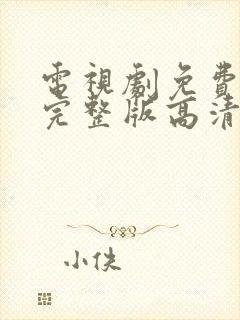 電視劇免費
完整版高清
小佚